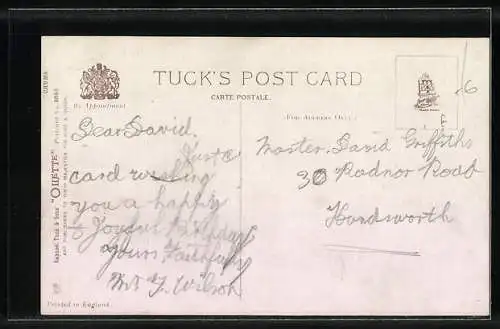 TUCK'S POST CARD
CARTE POSTALE.
By Appointment
(FOR ADDRESS ONLY.)
Raphael Tuck & Sons' "OILETTE"
Dear David.
Just a
card wishing
you a happy
& Joyous Birthday
yours Faithfully
Mr J. Wilson
Master. David Griffiths
30 Radnor Road
Handsworth
6
Printed in England